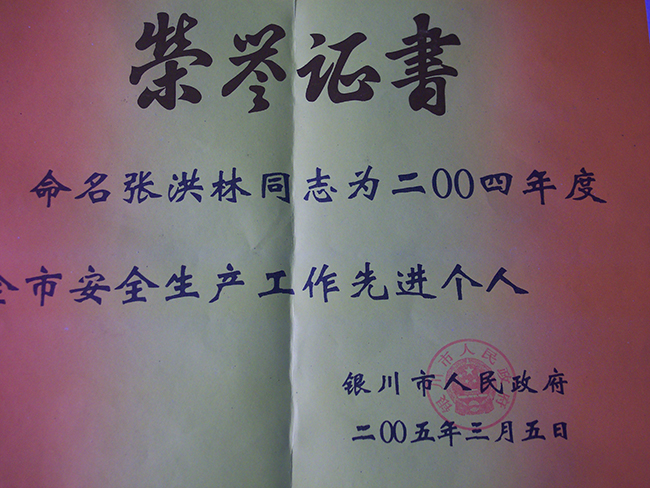 榮誉证書
命名张洪林同志为二00四年度
全市安全生产工作先进个人
银川市人民政府
银川市人民政府
二00五年三月五日